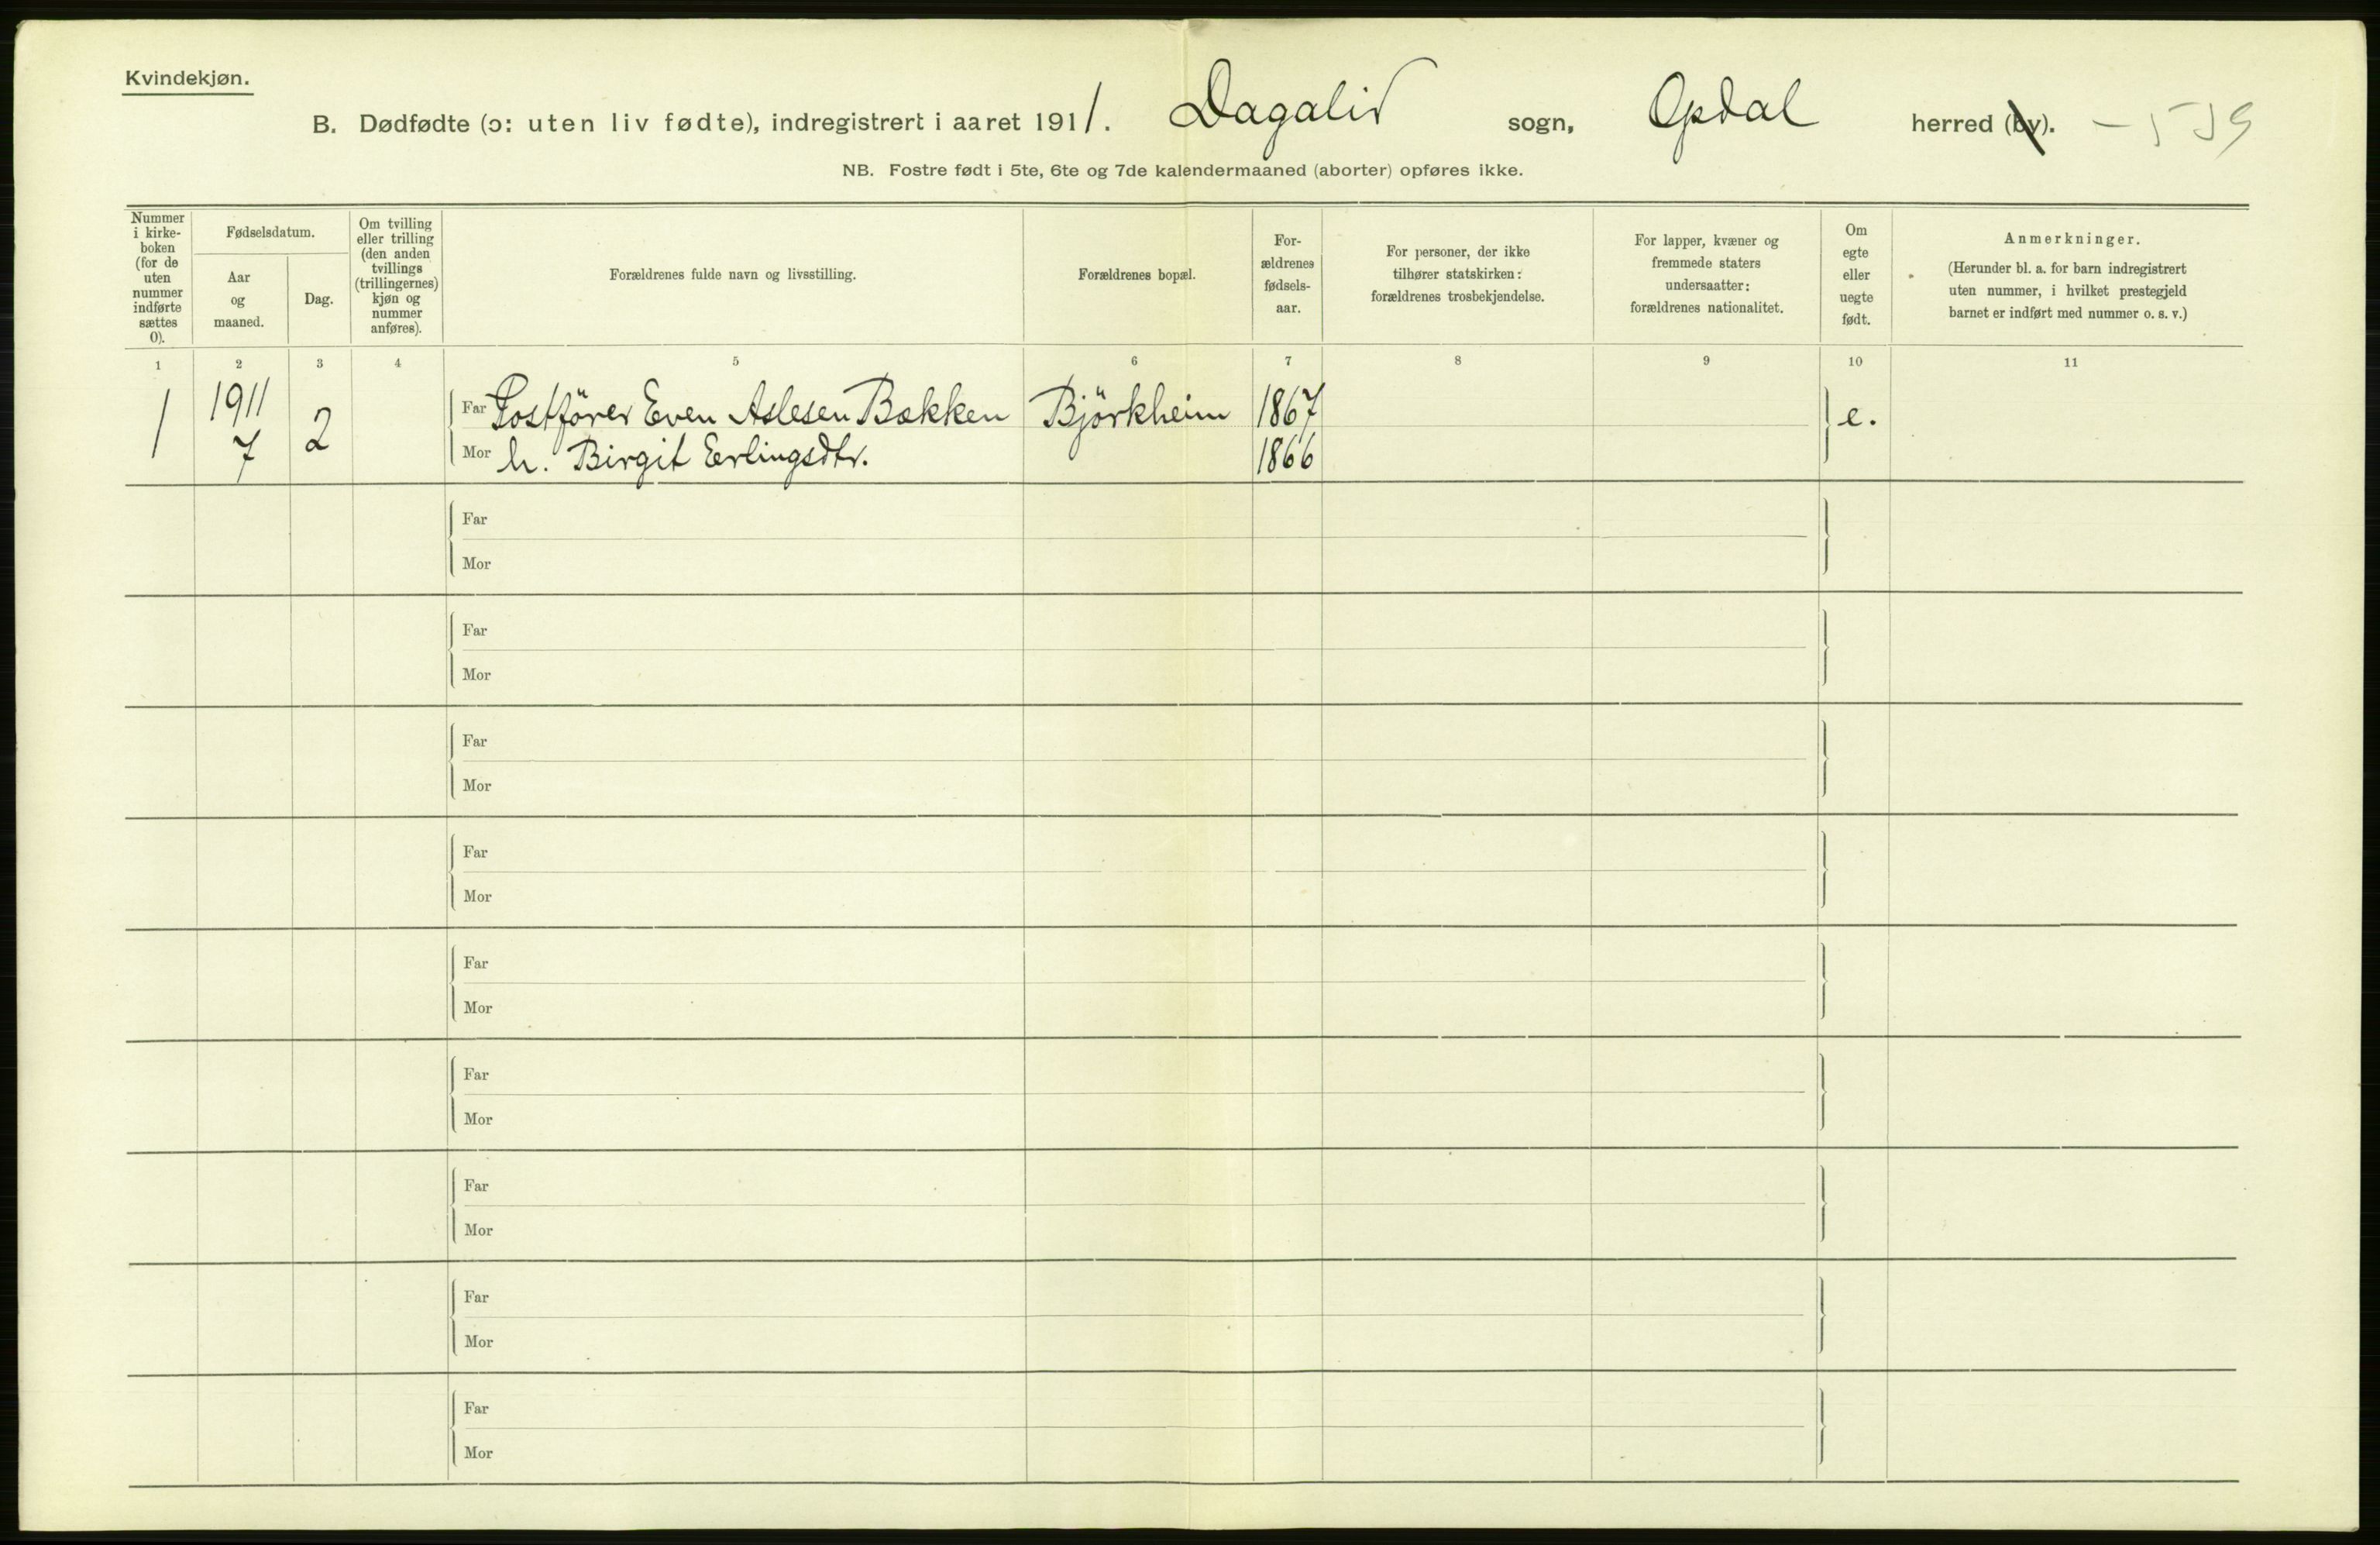 Kvindekjøn.
B. Dødfødte (ɔ: uten liv fødte), indregistrert i aaret 1911. Dagalid sogn, Opdal herred (by).
NB. Fostre født i 5te, 6te og 7de kalendermaaned (aborter) opføres ikke.
Nummer
i kirke-
boken
(for de
uten
nummer
indførte
sættes
0).
Fødselsdatum.
Aar
og
maaned.
Dag.
Om tvilling
eller trilling
(den anden
tvillings
(trillingernes)
kjøn og
nummer
anføres).
Forældrenes fulde navn og livsstilling.
Forældrenes bopæl.
For-
ældrenes
fødsels-
aar.
For personer, der ikke
tilhører statskirken:
forældrenes trosbekjendelse.
For lapper, kvæner og
fremmede staters
undersaatter:
forældrenes nationalitet.
Om
egte
eller
uegte
født.
Anmerkninger.
(Herunder bl. a. for barn indregistrert
uten nummer, i hvilket prestegjeld
barnet er indført med nummer o. s. v.)
1 2 3 4 5 6 7 8 9 10 11
1 1911 7 2 Far Postfører Even Aslesen Bakken Björkheim 1867 e.
Mor h. Birgit Erlingsdtr. 1866
Far
Mor
Far
Mor
Far
Mor
Far
Mor
Far
Mor
Far
Mor
Far
Mor
Far
Mor
Far
Mor